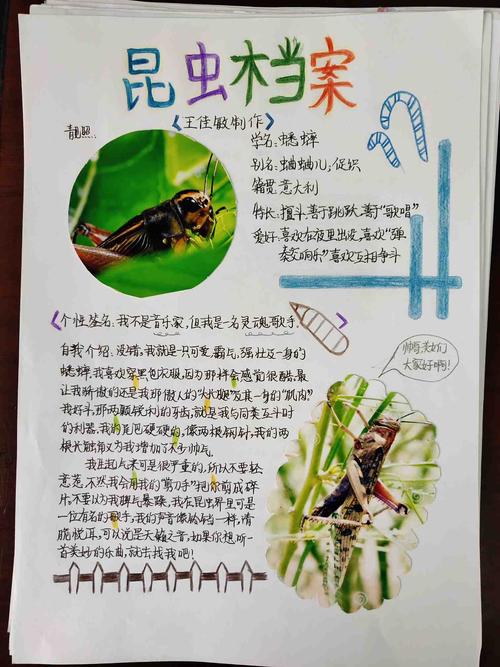 昆虫档案
《王佳敏制作》
靓照:
学名:蟋蟀
别名:蛐蛐儿,促织
籍贯:意大利
特长:擅斗,善于跳跃,善于“歌唱”
爱好:喜欢在夜里出没,喜欢“弹
奏交响乐”喜欢互相争斗
《个性签名:我不是音乐家,但我是一名灵魂歌手。》
自我介绍:没错,我就是一只可爱,霸气,强壮及一身的
蟋蟀。我喜欢穿黑色衣服,因为那样会感觉很酷。最
让我骄傲的还是我那傲人的“大长腿”及其一身的“肌肉”
我好斗,那两颗锐利的牙齿,就是我与同类互斗时
的利器。我的尾巴硬硬的,像两根钢针,我的两
根大触角又为我增加了不少帅气。
我生起气来可是很严重的,所以不要轻
意惹,不然我会用我的“剪刀手”把你剪成碎
片。不要以为我脾气暴躁,我在昆虫界里可是
一位有名的歌手,我的声音像铃铛一样,清
脆悦耳,可以说是天籁之音,如果你想听一
首美妙的乐曲,就去找我吧!
帅哥美女们
大家好啊!